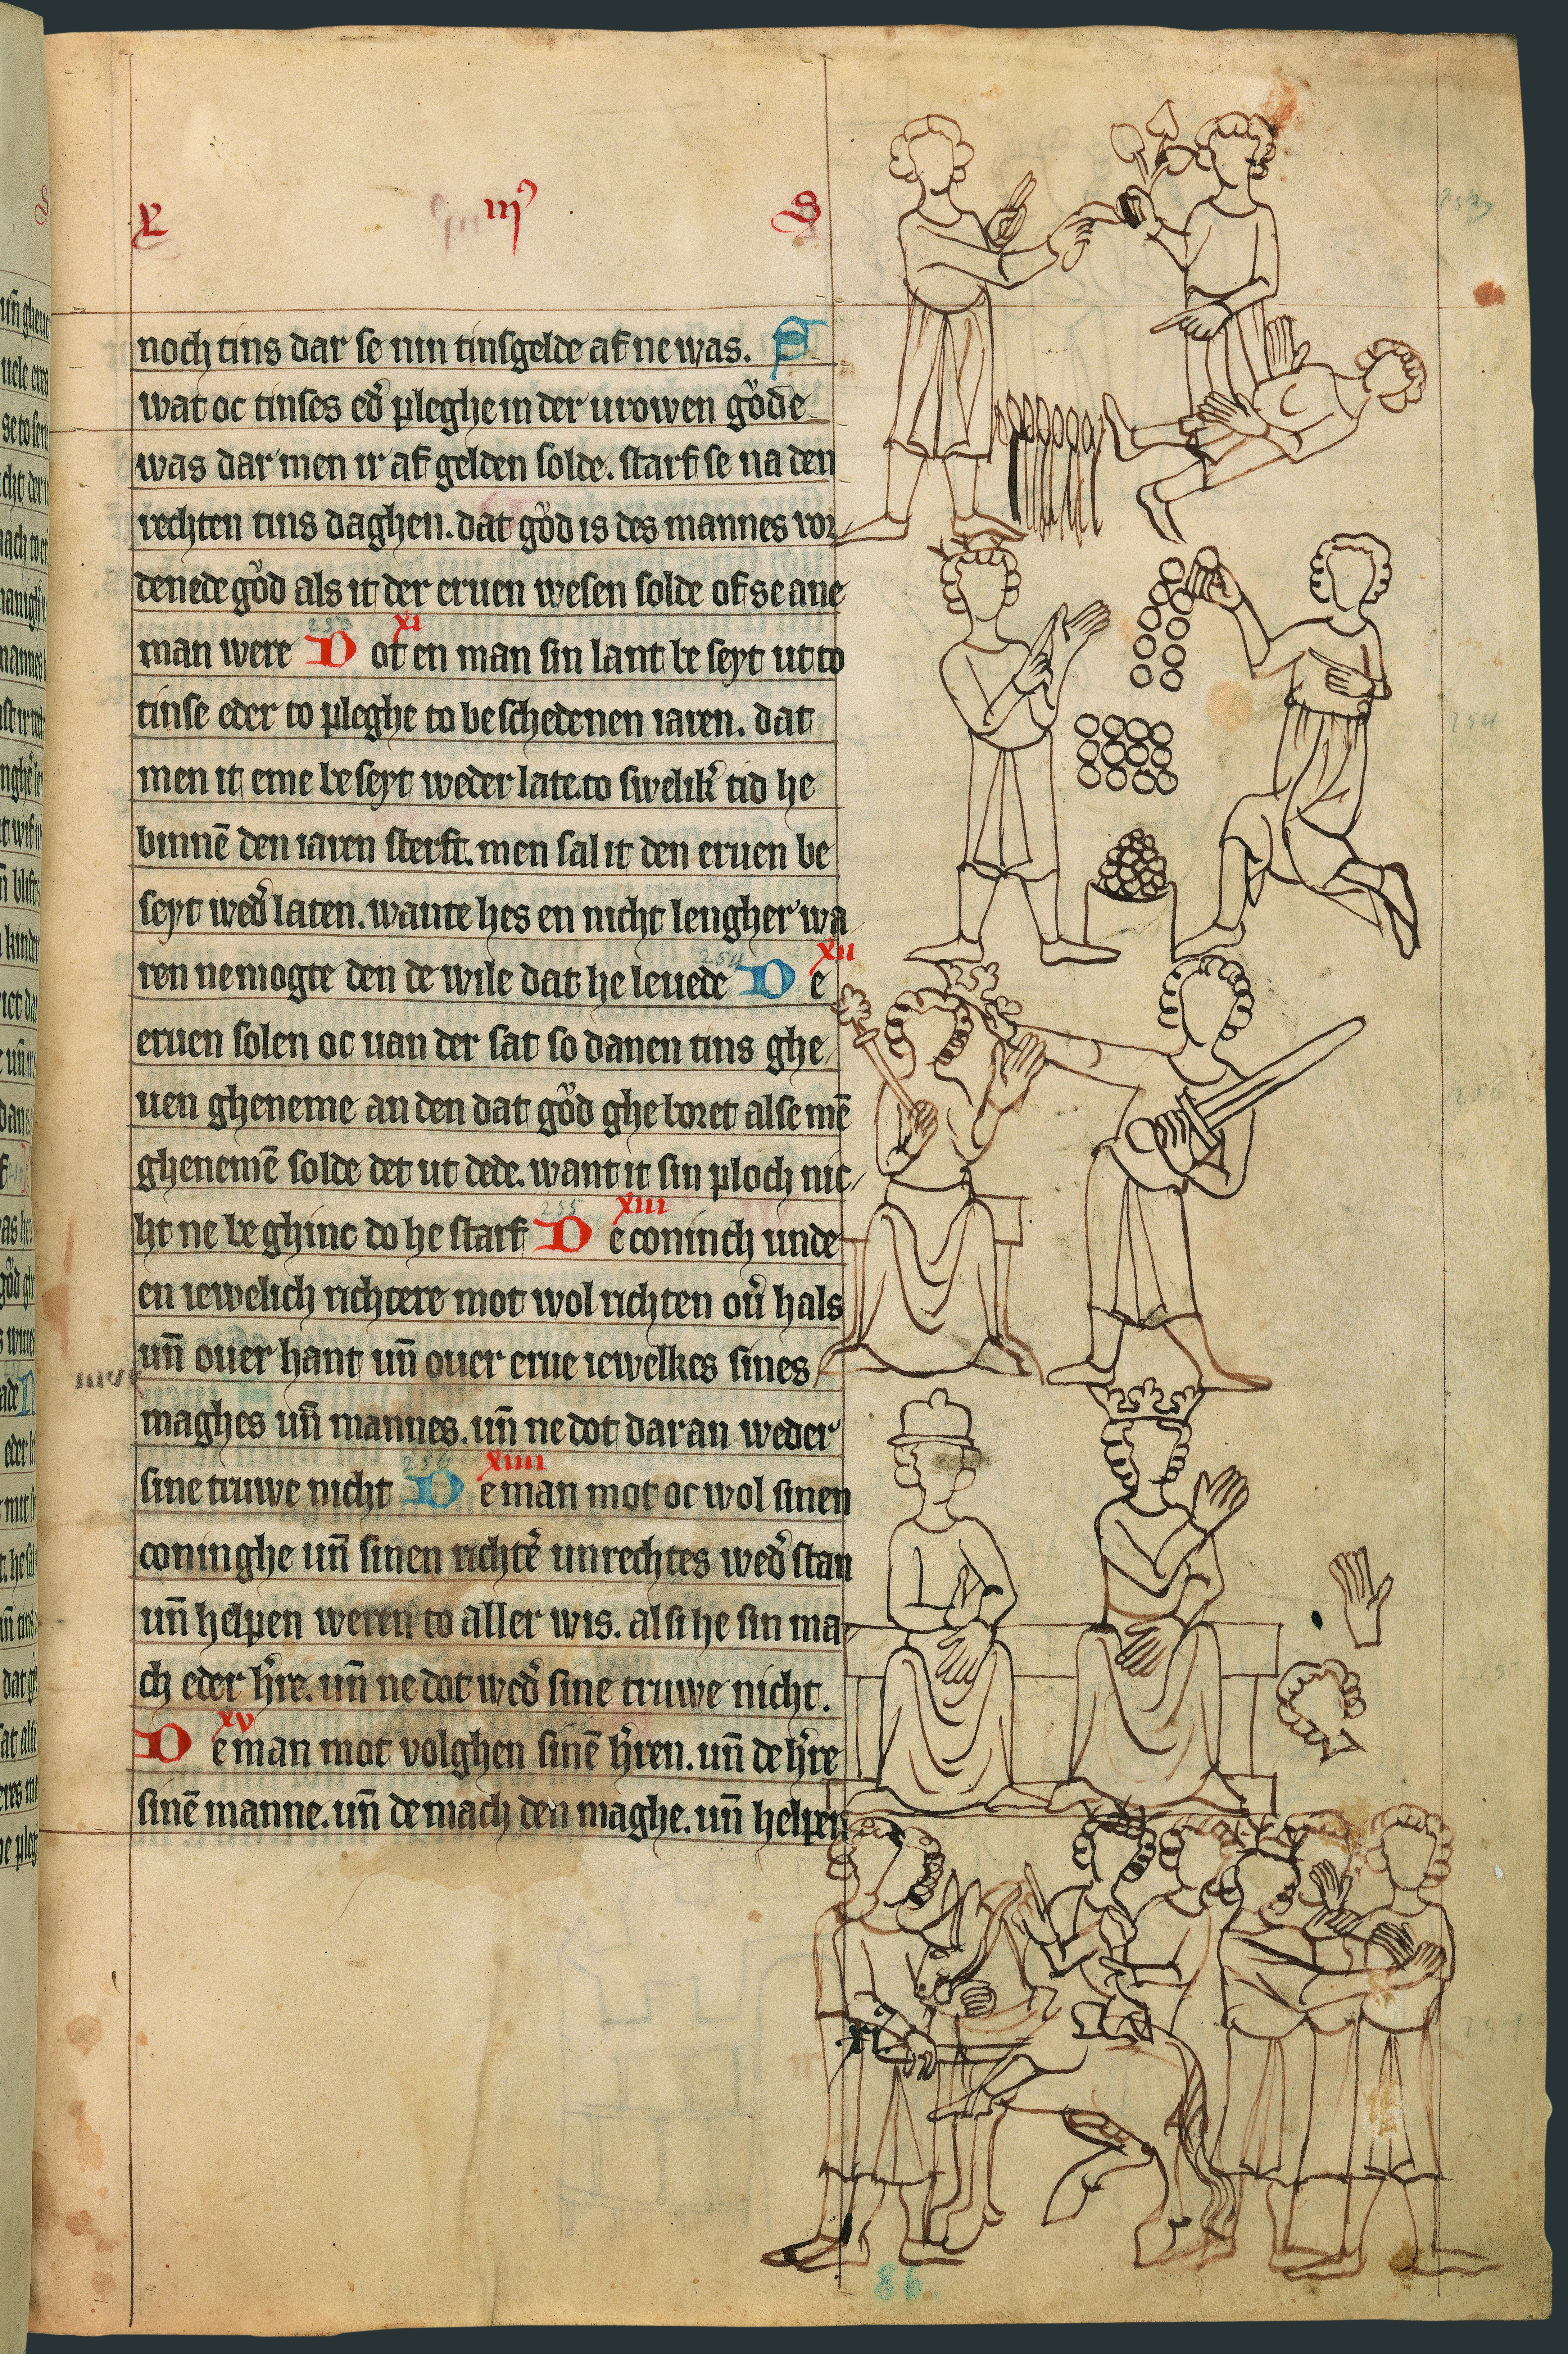 noch tins dar se nin tinsgelde af ne was. S
wat oc tinses ed̉ pleghe in der urowen gͦde
was dar men ir af gelden solde. starf se na den
rechten tins daghen. dat gͦd is des mannes vor
denede gͦd als it der eruen wesen solde of se ane
man were D xi ot en man sin lant be seyt ut to
tinse eder to pleghe to be schedenen iaren. dat
men it eme be seyt weder late. to swelik̉ tid he
binnē den iaren sterft. men sal it den eruen be
seyt wed̉ laten. wante he s en nicht lengher wa
ren ne mogte den de wile dat he leuede D xii e
eruen solen oc uan der sat so danen tins ghe
uen gheneme an den dat gͦd ghe boret alse mē
ghenemē solde det ut dede. want it sin ploch nic
ht ne be ghinc do he starf D xiii e coninch unde
en iewelich richtere mot wol richten oủ hals
un̄ ouer hant un̄ ouer erue iewelkes sines
maghes un̄ mannes. un̄ ne dot dar an weder
sine truwe nicht D xiiii e man mot oc wol sinen
coninghe un̄ sinen richtẻ unrechtes wed̉ stan
un̄ helpen weren to aller wis. al si he sin ma
ch eder h̉re. un̄ ne dot wed̉ sine truwe nicht.
D xv e man mot volghen sinē h̉ren. un̄ de h̉re
sinē manne. un̄ de mach den maghe. un̄ helpen
86